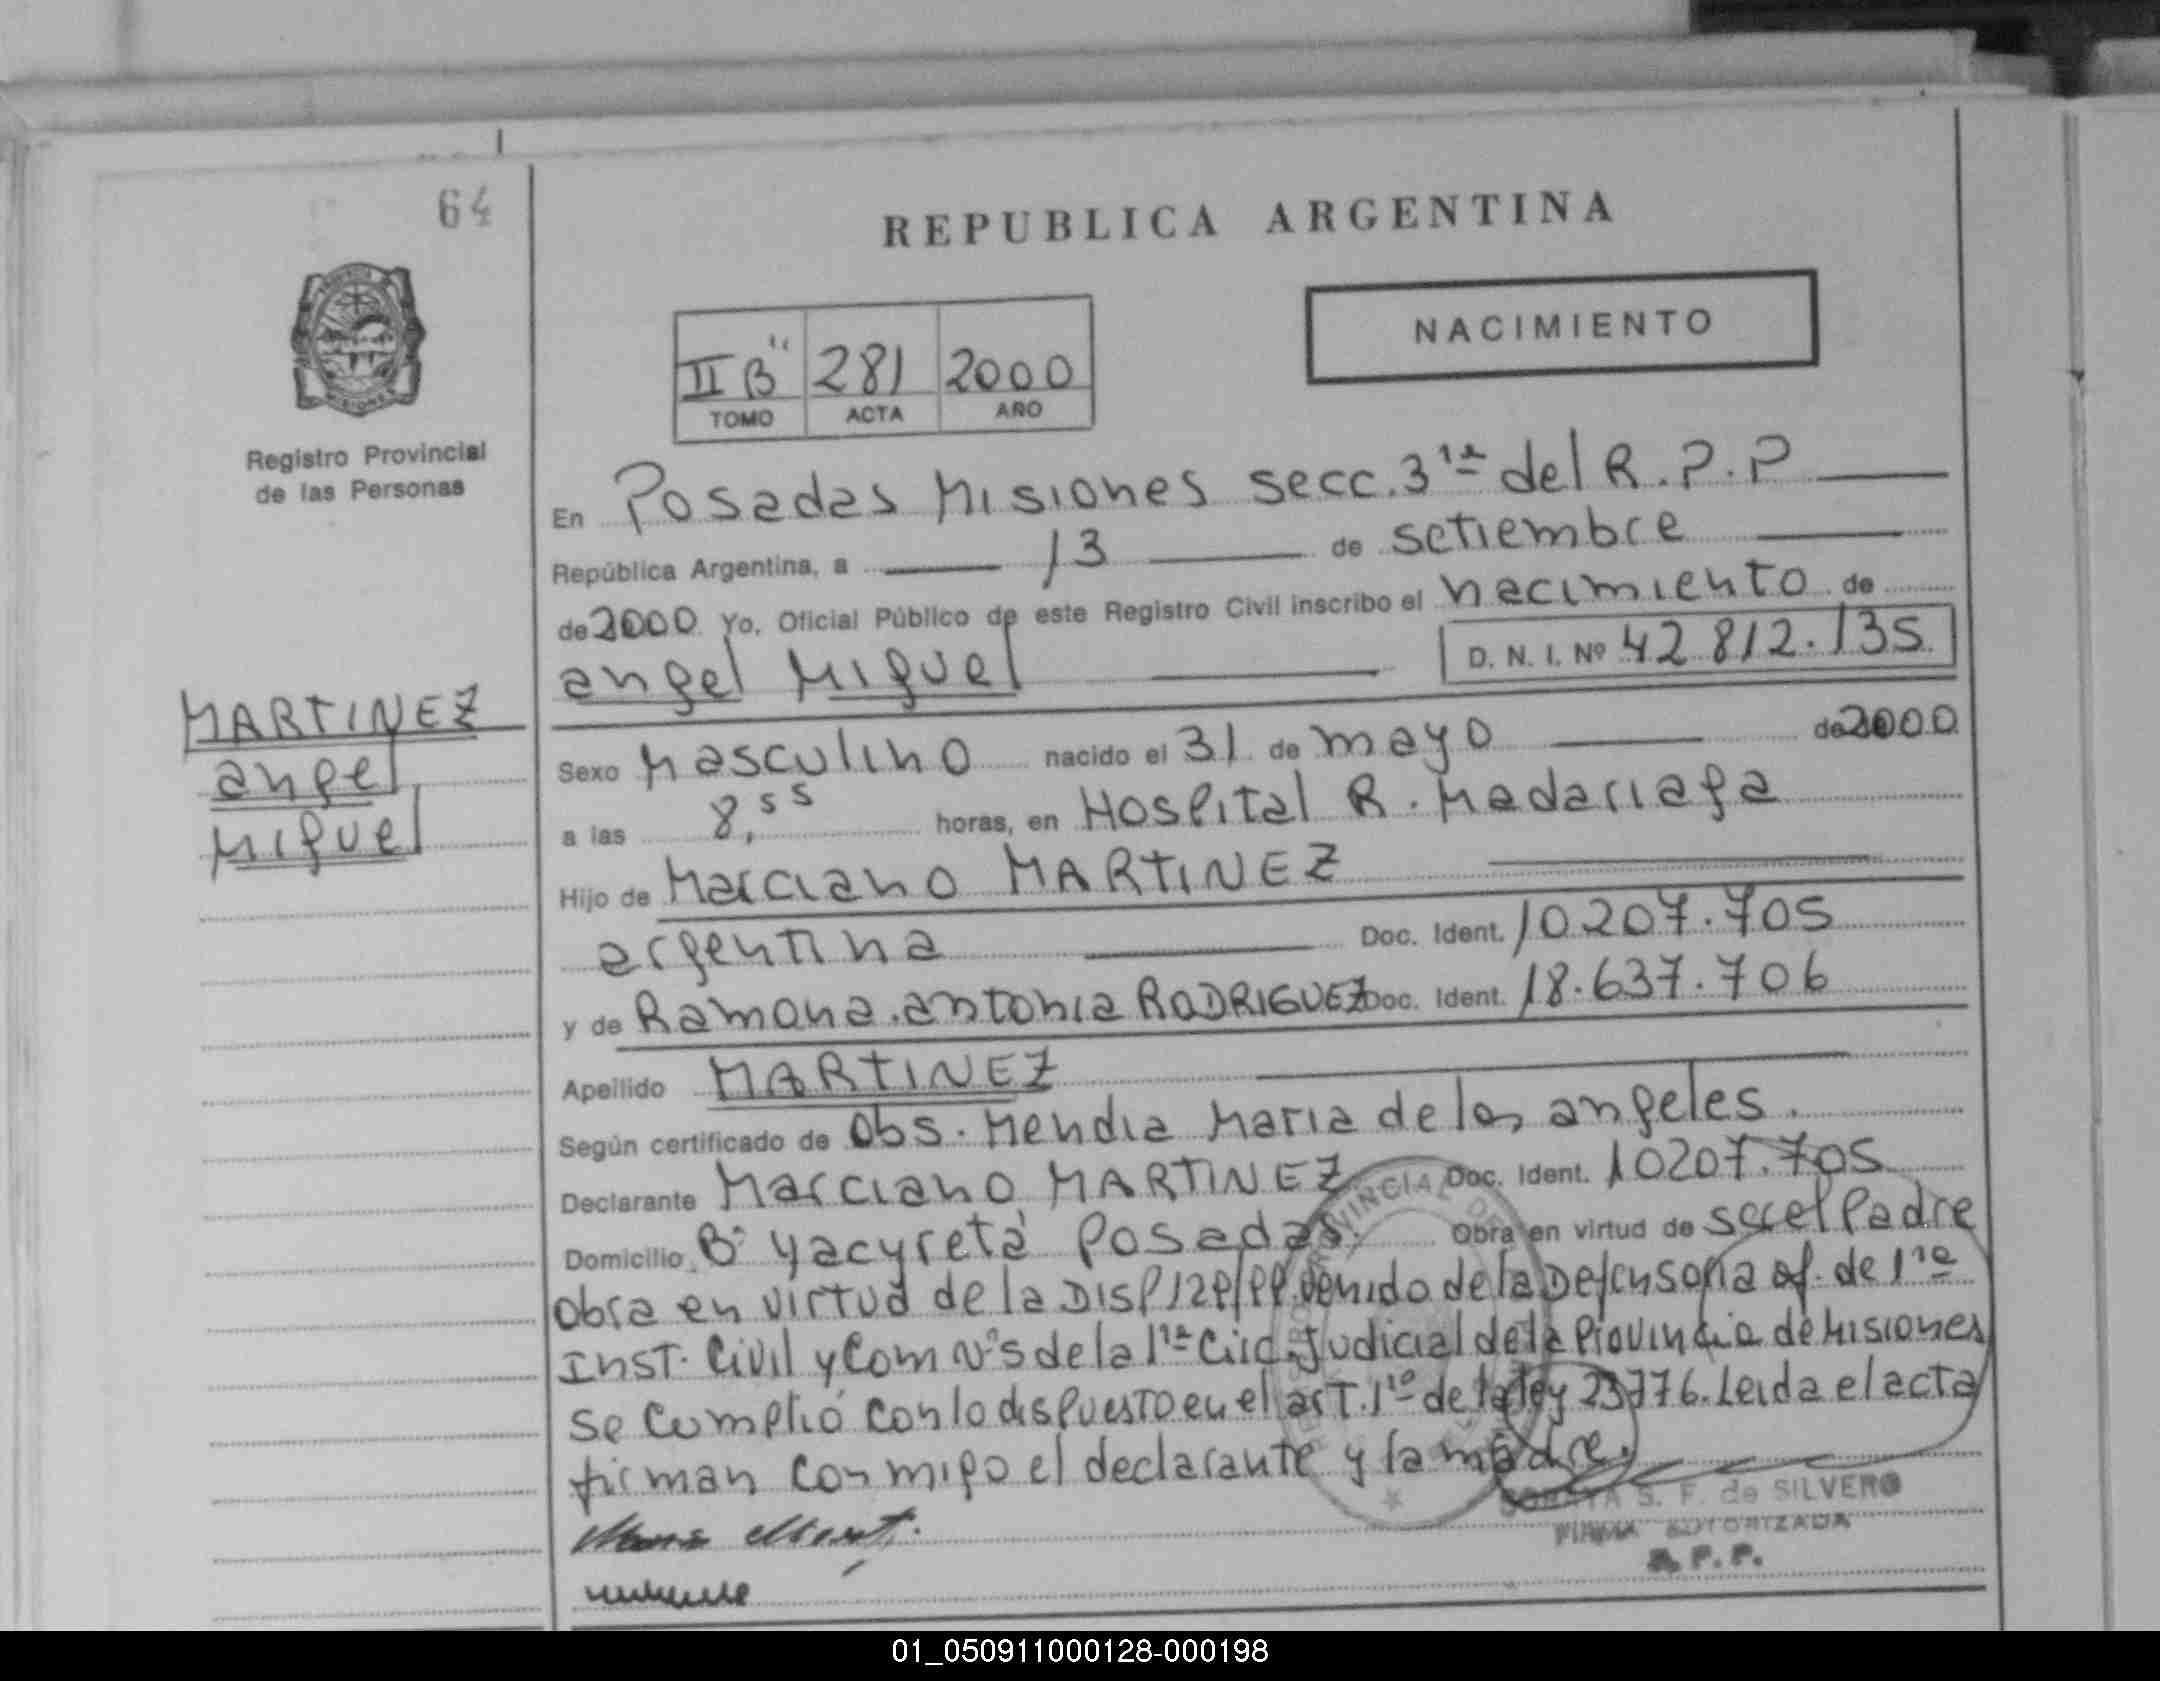 64
REPUBLICA ARGENTINA
NACIMIENTO
II B" 281 2000
TOMO ACTA AÑO
Registro Provincial
de las Personas
En Posadas Misiones secc. 3ra del R.P.P
República Argentina, a 13 de setiembre
de 2000 Yo, Oficial Público de este Registro Civil inscribo el nacimiento de
angel Miguel D. N. I. Nº 42 812.135
MARTINEZ
angel
Miguel
Sexo Masculino nacido el 31 de mayo de 2000
a las 8,55 horas, en Hospital R. Madariaga
Hijo de Marciano MARTINEZ
argentina Doc. Ident. 10207.705
y de Ramona antonia RODRIGUEZ Doc. Ident. 18.637.706
Apellido MARTINEZ
Según certificado de Obs. Mendia Maria de los angeles.
Declarante Marciano MARTINEZ Doc. Ident. 10207.705
Domicilio Bº Yacyretá Posadas. Obra en virtud de ser el Padre
Obra en virtud de la DISP 129/99 venido de la Defensoria of. de 1ra
Inst. Civil y Com Nº 5 de la 1ra Circ. Judicial de la Provincia de Misiones
se cumplió con lo dispuesto en el art. 1ro de la ley 23776. Leida el acta
firman conmigo el declarante y la madre.
S. F. de SILVERO
FIRMA AUTORIZADA
R. P. P.
01_050911000128-000198